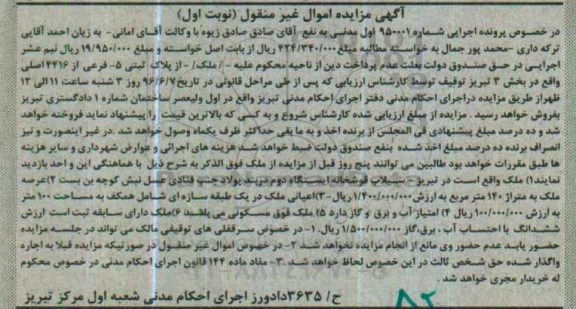 آگهی مزایده اموال غیر منقول (نوبت اول)
در خصوص پرونده اجرایی شماره ۹۵۰۰۰۱ اول مدنی به نفع آقای صادق صادق زیوه با وکالت آقای امانی- به زیان احمد آقایی
ترکه داری -محمد پور جمال به خواسته مطالبه مبلغ ۴۲۴/۳۴۰/۰۰۰ ریال از بابت اصل خواسته و مبلغ ۱۹/۹۵۰/۰۰۰ ریال نیم عشر
اجرایی در حق صندوق دولت بعلت عدم پرداخت دین از ناحیه محکوم علیه -/ ملک/- از پلاک ثبتی ۵- فرعی از ۴۴۱۶ اصلی
واقع در بخش ۳ تبریز توقیف توسط کارشناس ارزیابی که پس از طی مراحل قانونی در تاریخ ۹۶/۶/۷ روز ۳ شنبه ساعت ۱۱ الی ۱۲
ظهر از طریق مزایده در اجرای احکام مدنی دفتر اجرای احکام مدنی تبریز واقع در اول ولیعصر ساختمان شماره ۱ دادگستری تبریز
بفروش خواهد رسید . مزایده از مبلغ ارزیابی شده کارشناس شروع و به کسی که بالاترین قیمت را پیشنهاد نماید فروخته خواهد
شد و ده درصد مبلغ پیشنهادی فی المجلس از برنده اخذ و به ما بقی حداکثر ظرف یکماه وصول خواهد شد .در غیر اینصورت و نیز
انصراف برنده ده درصد مبلغ اخذ شده بنفع صندوق دولت ضبط خواهد شد هزینه های اجرائی و عوارض شهرداری و سایر هزینه
ها طبق مقررات خواهد بود طالبین می توانند پنج روز قبل از مزایده از ملک فوق الذکر به شرح ذیل با هماهنگی این و احد بازدید
نمایند۱) ملک واقع است در تبریز - سیلاب قوشخانه ایستگاه دوم دربند پولاد جنب قنادی عسل نبش کوچه بن بست ۲)عرصه
ملک به متراژ ۱۴۰ متر مربع به ارزش ۱/۴۰۰/۰۰۰/۰۰۰ ریال -۳)اعیانی ملک در یک طبقه سازه ای شامل همکف به مساحت ۱۰۰ متر
به ارزش ۱۰۰/۰۰۰/۰۰۰ ریال ۴) امتیاز آب و برق و گاز دارد ۵) ملک فوق مسکونی می باشد ۶)ملک دارای سابقه ثبت است ارزش
ششدانگ با احتساب آب ،برق،گاز ۱/۵۰۰/۰۰۰/۰۰۰ ریال ۱- در خصوص سرقفلی های توقیفی مالک می تواند در جلسه مزایده
حضور یابد عدم حضور وی مانع از انجام مزایده نخواهد شد ۲- در خصوص اموال غیر منقول در صورتیکه مزایده قبلا به اجاره
واگذار شده حق شخص ثالث در این خصوص لحاظ خواهد شد .۳- مفاد ماده ۱۴۴ قانون اجرای احکام مدنی در خصوص محکوم
له خریدار مجری خواهد شد .
ح/ ۳۶۳۵ دادورز اجرای احکام مدنی شعبه اول مرکز تبریز
۸۲